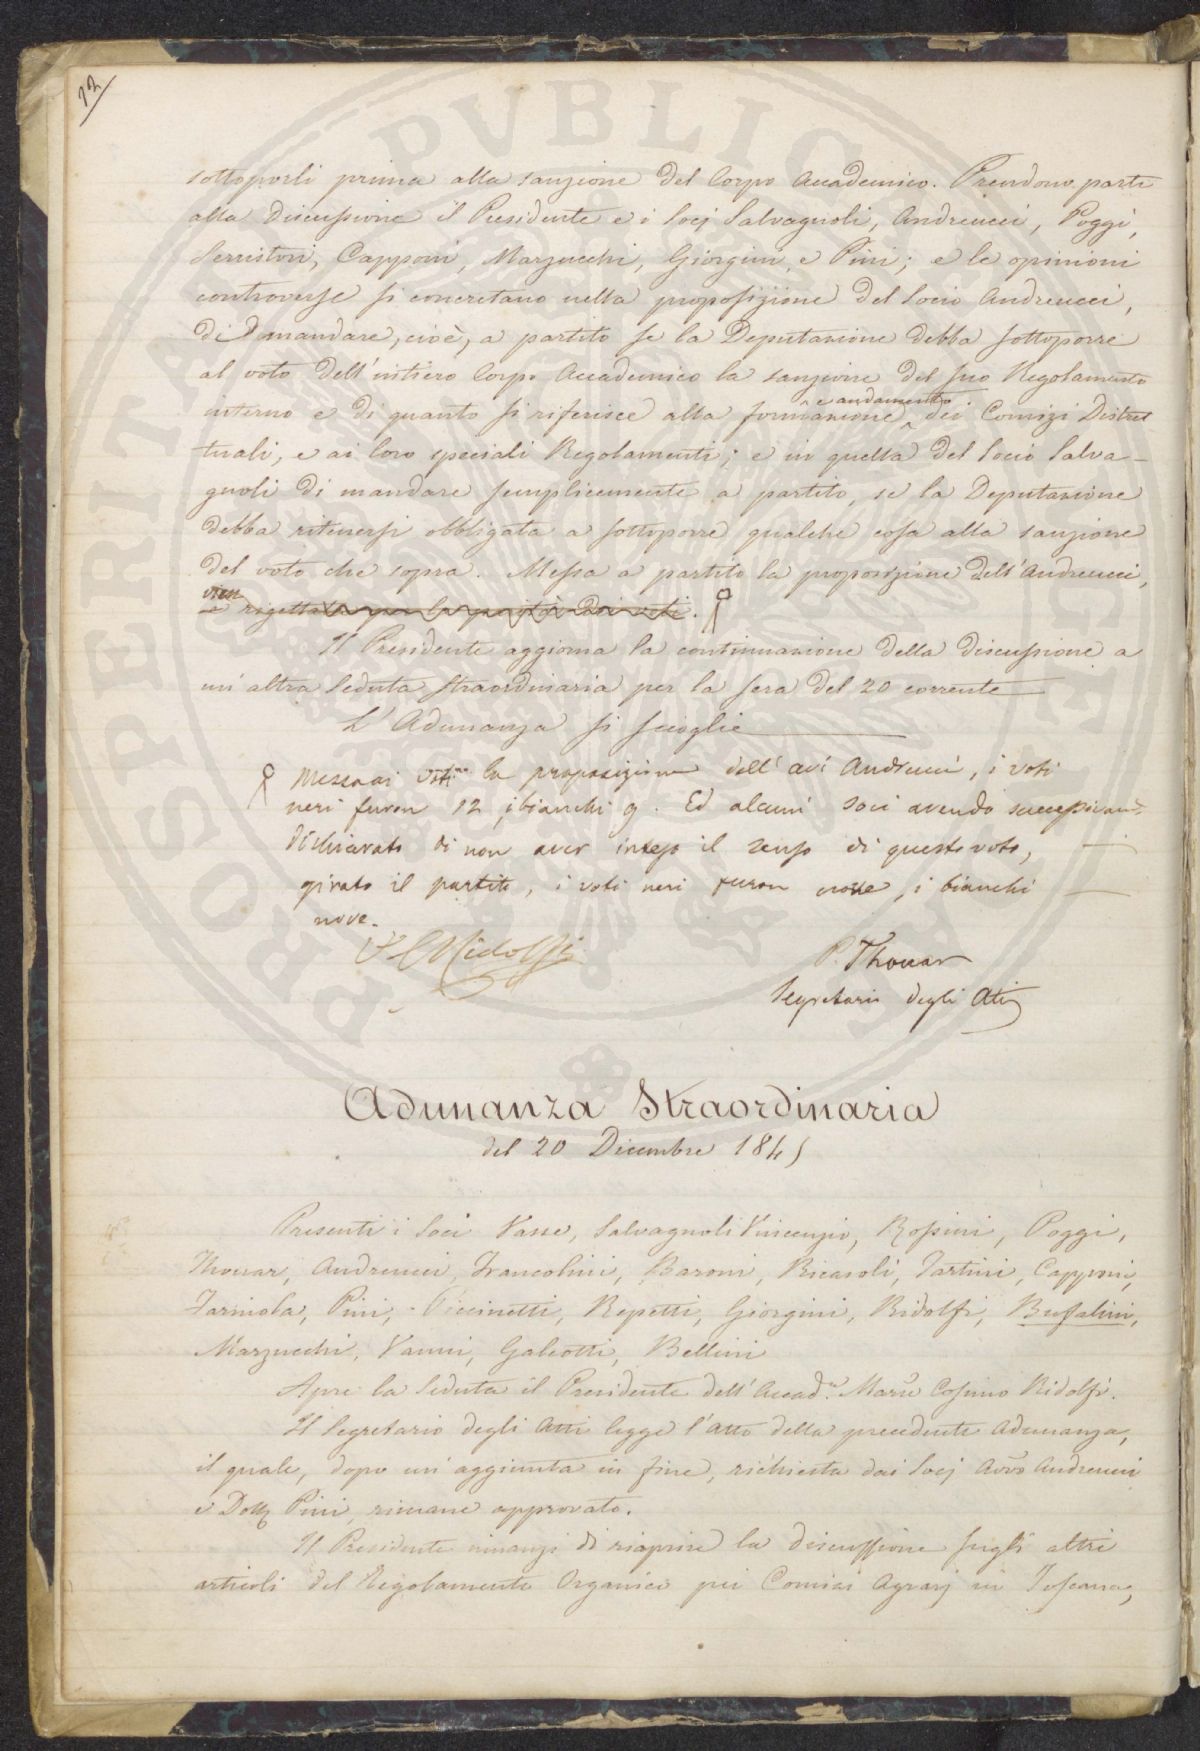 12
sottoporli prima alla sanzione del Corpo Accademico. Prendono parte
alla Discussione il Presidente e i Socj Salvagnoli, Andreucci, Poggi,
Serristori, Capponi, Marzucchi, Giorgini, e Pini; e le opinioni
controverse si concretano nella proposizione del Socio Andreucci,
di Domandare, cioè, a partito se la Deputazione debba sottoporre
al voto dell'intiero Corpo Accademico la sanzione del suo Regolamento
e andamento
interno e di quanto si riferisce alla formazione dei Comizi Distret
tuali, e ai loro speciali Regolamenti; e in quella del Socio Salva-
gnoli di mandare semplicemente a partito, se la Deputazione
debba ritenersi obbligata a sottoporre qualche cosa alla sanzione
del voto che sopra. Messa a partito la proposizione dell'Andreucci,
vien
è rigettata per la parità dei voti.
Il Presidente aggiorna la continuazione della discussione a
un'altra Seduta straordinaria per la sera del 20 corrente
L'Adunanza si scioglie
Messa ai voti la proposizione dell'avv Andreucci, i voti
neri furon 12, i bianchi 9. Ed alcuni soci avendo
dichiarato di non aver inteso il senso di questo voto,
girato il partito, i voti neri furon nove, i bianchi
nove.
C Ridolfi
P. Thouar
Segretario degli Atti
Adunanza Straordinaria
del 20 Dicembre 1845
Presenti i Soci Vasse, Salvagnoli Vincenzio, Rossini, Poggi,
Thouar, Andreucci, Francolini, Baroni, Ricasoli, Tartini, Capponi,
Farniola, Pini, Piccinetti, Repetti, Giorgini, Ridolfi, Bufalini,
Marzucchi, Vanni, Galeotti, Bellini
Apre la Seduta il Presidente dell'Accad.ia Marse Cosimo Ridolfi.
Il Segretario degli Atti legge l'atto della precedente Adunanza,
il quale, dopo un'aggiunta in fine, richiesta dai Socj Avvo Andreucci
e Dott Pini, rimane approvato.
Il Presidente innanzi di riaprire la discussione sugli altri
articoli del Regolamento Organico pei Comizi Agrarj in Toscana,